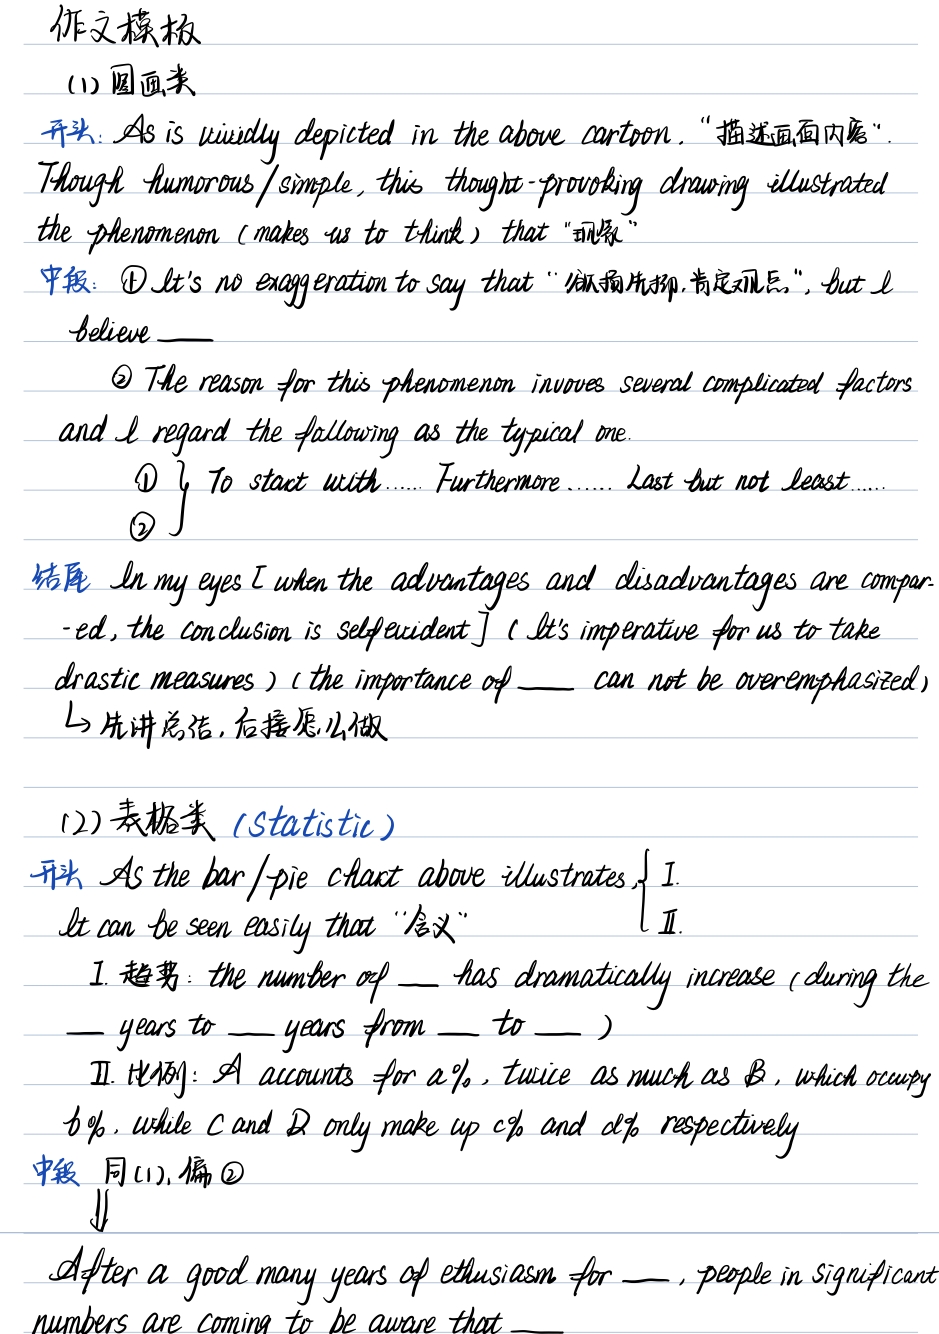 作文模板
(1) 图画类
开头: As is vividly depicted in the above cartoon, "描述画面内容".
Though humorous/simple, this thought-provoking drawing illustrated
the phenomenon (makes us to think) that "现象"
中段: ① It's no exaggeration to say that "欲扬先抑,肯定观点", but I
believe ___
② The reason for this phenomenon invoves several complicated factors
and I regard the following as the typical one.
① } To start with...... Furthermore...... Last but not least......
②
结尾 In my eyes [when the advantages and disadvantages are compar-
-ed, the conclusion is selfevident] (It's imperative for us to take
drastic measures) (the importance of ___ can not be overemphasized)
↳ 先讲总结,后接怎么做
(2) 表格类 (Statistic)
开头 As the bar/pie chart above illustrates, { I.
It can be seen easily that "含义" II.
I. 趋势: the number of ___ has dramatically increase (during the
___ years to ___ years from ___ to ___ )
II. 比例: A accounts for a%, twice as much as B, which occupy
b%, while C and D only make up c% and d% respectively
中段 同(1),偏②
⇓
After a good many years of ethusiasm for ___, people in significant
numbers are coming to be aware that ___